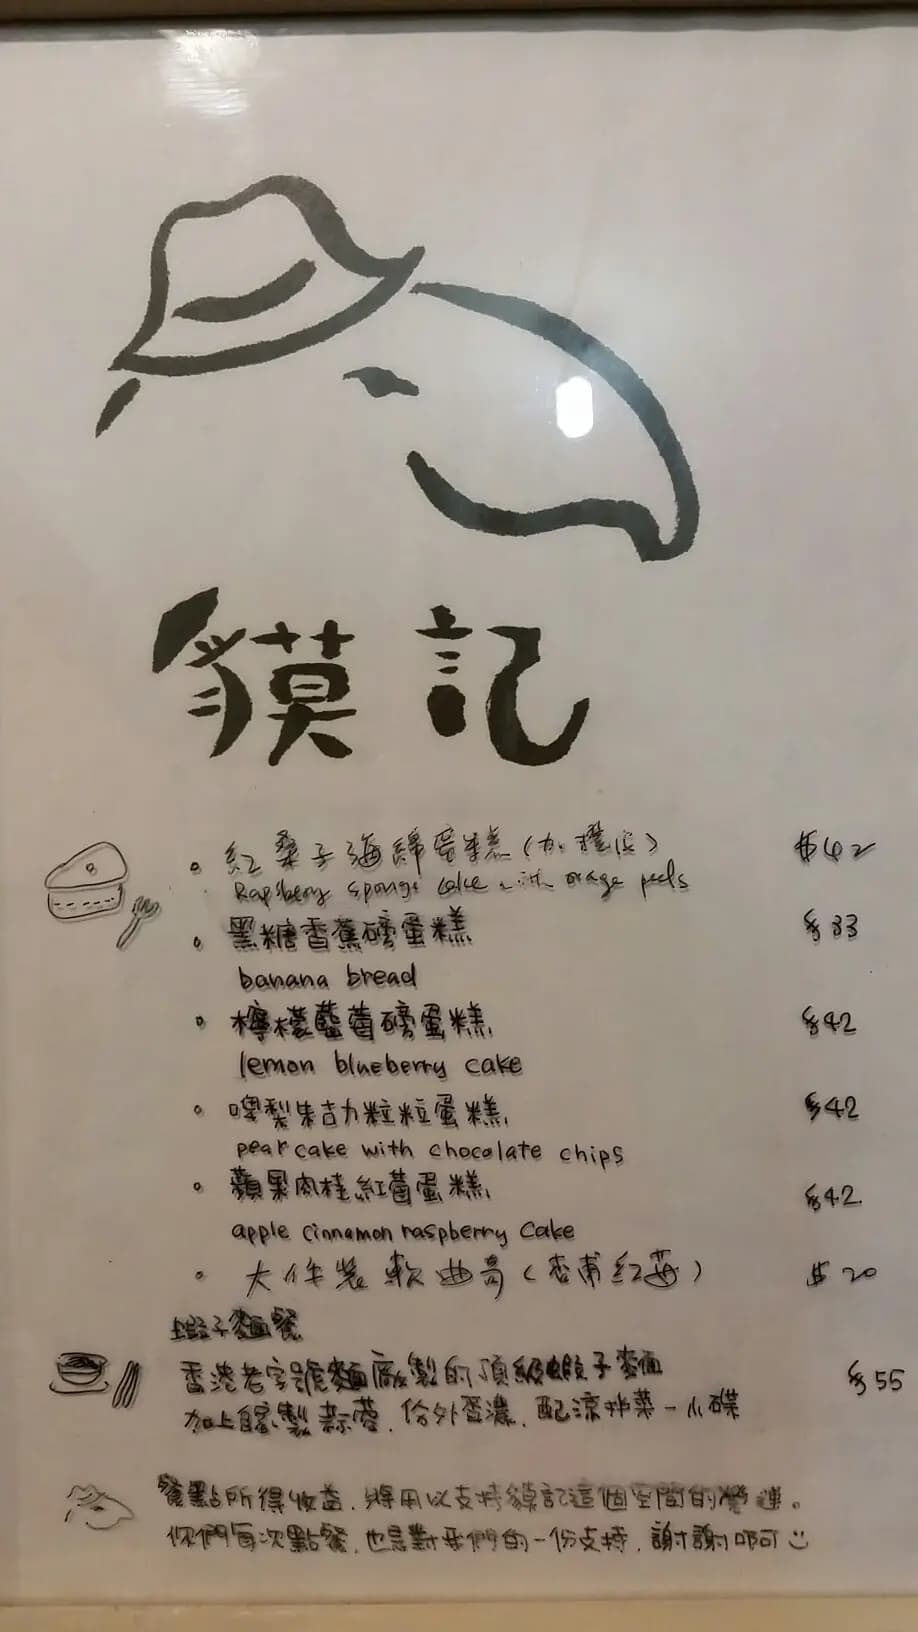 貘記
紅桑子海綿蛋糕(加橙皮) $42
Rapsberry sponge cake with orage peels
黑糖香蕉磅蛋糕 $33
banana bread
檸檬藍莓磅蛋糕 $42
lemon blueberry cake
啤梨朱古力粒粒蛋糕 $42
pear cake with chocolate chips
蘋果肉桂紅莓蛋糕 $42
apple cinnamon raspberry cake
大件裝軟曲奇(杏甫紅莓) $20
蝦子麵餐
香港老字號麵廠製的頂級蝦子麵 $55
加上自家製蒜蓉,份外香濃,配涼拌菜一小碟
餐點所得收益,將用以支持貘記這個空間的營運。
你們每次點餐,也是對我們的一份支持,謝謝啊